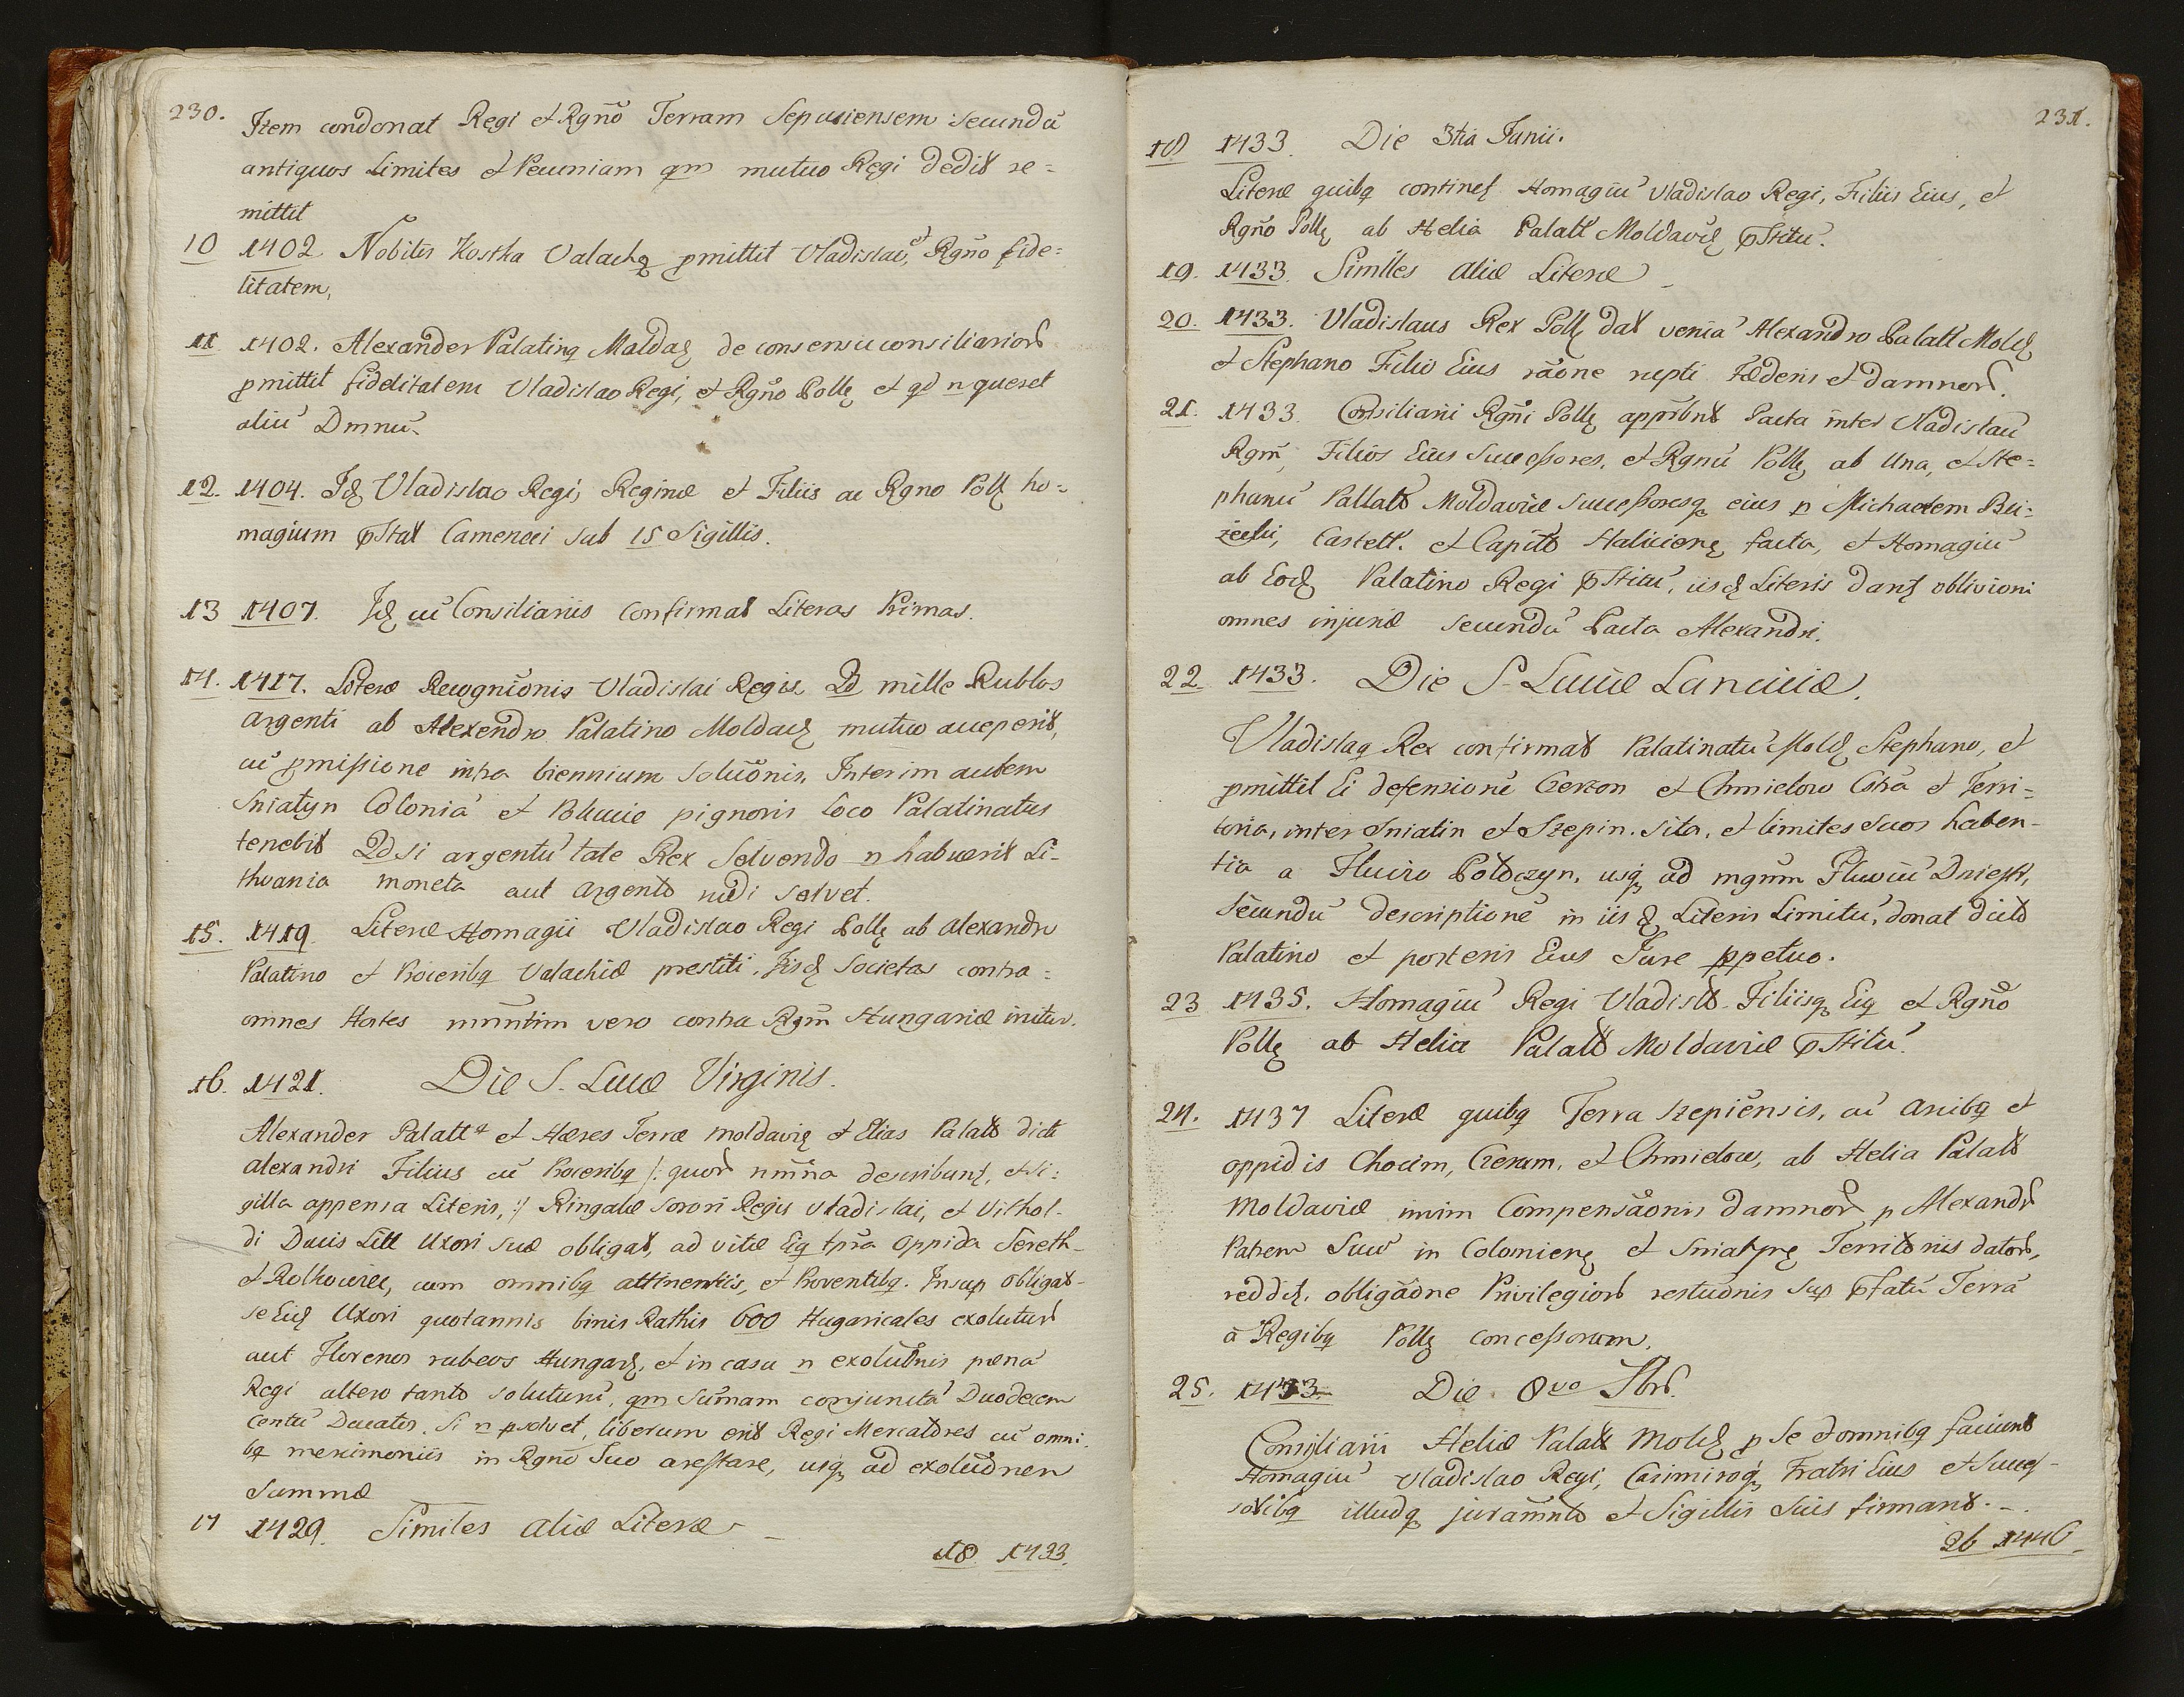 230.
Item condonat Regi et Rgnõ Terram Sepusiensem secundũ
antiquos Limites et Pecuniam qm mutuo Regi dedit re=
mittit
10 1402 Nobilis Kostka Valachq pmittit Vladislao, et Rgno fide=
litatem,
11 1402. Alexander Palatinq Moldaę de consensu consiliarior
pmittit fidelitatem Vladislao Regi, et Rgno Pollę et qd n queret
aliũ Dmnũ.
12. 1404. Idę Vladislao Regi, Reginæ et Filiis ac Rgno Pollę ho=
magium pstat Cameneci sub 15 Sigillis.
13 1407. Idę cũ Consiliariis Confirmat Literas Primas.
14. 1417. Literæ Recognĩonis Vladislai Regis Qd mille Rublos
Argenti ab Alexendro Palatino Moldaę mutuo acceperit,
cũ pmissione intra biennium solũonis, Interim autem
Sniatyn Coloniã et Pokucie pignoris loco Palatinatus
tenebit Qd si argentũ tale Rex Solvendo n habuerit Li-
thvania moneta aut Argento rudi solvet.
15. 1419. Literæ Homagii Vladislao Regi Pollę ab Alexandro
Palatino et Proceribq Valachiæ prestiti, Iisdę Societas contra=
omnes Hostes mnntim vero contra Rgm Hungariæ initur.
16. 1421. Die S. Luciæ Virginis.
Alexander Palatt et Hæres Terræ Moldavię et Elias Palatt dicti
Alexandri Filius cũ Procerib[q] /: quor nmña describunt, et Si=
gilla appensa Literis, :/ Ringalæ sorori Regis Vladislai, et Vithol-
di Ducis Litt Uxori suæ obligat, ad vitæ Eiq tpra Oppida Sereth-
et Rolhowiec, cum omnibq attinentiis, et Proventibq. Insup Obligat-
se Eidę Uxori quotannis binis Rathis 600 Hugaricales exolutur
aut Florenos rubeos Hungarię, et in casu n exolũonis pœnã
Regi altero tanto soluturũ, qm Summam conjunctã Duodecem
Centũ Ducatos. Si n psolvet, liberum erit Regi Mercatores cũ omni
bq mercimoniis in Rgnõ Suo arestare, usq ad exolũonem
Summæ
17 1429. Similes aliæ Literæ -
18 1433.
231.
18 1433. Die 3tia Junii.
Literæ quibq continet Homagiũ Vladislao Regi, Filiis Eius, et
Rgño Pollę ab Helia Palatt Moldavię pstitũ.
19. 1433. Similes aliæ Literæ
20. 1433. Vladislaus Rex Pollę dat veniã Alexandro Palatt Moldę
et Stephano Filio Eius rãone rupti Fœderis et damnor.
21. 1433 Consiliarii Rgñi Pollę apprbnt Pacta inter Vladislaũ
Rgm, Filios Eius Successores, et Rgnũ Pollę ab Una, et Ste=
phanũ Pallatt Moldaviæ Successoresq eius p Michaelem Bu=
żecki, Castell. et Capitt Halicienę facta, et Homagiũ
ab Eodę Palatino Regi pstitũ, iisdę Literis dantę oblivioni
omnes injuriæ secundũ Pacta Alexandri.
22 1433. Die S. Luciæ Lanciciæ.
Vladislaq Rex confirmat Palatinatũ Moldę Stephano, et
pmittit Ei defensionẽ Cecon et Chmielow Cstra et Terri=
toria, inter Sniatin et Szepin. Sita, et limites suos haben-
tia a Fluvio Potoczyn, usq ad mgnm Fluviũ Dniestr,
Secundũ descriptionẽ in iis dę Literis Limitũ, donat dicto
Palatino et posteris Eius Jure ppetuo.
23 1435. Homagiũ Regi Vladislo Filiisq Eiq et Rgño
Pollę ab Helia Palatt Moldaviæ pstitũ.
24. 1437 Literæ quibq Terra Szepiensis, cũ Arcibq et
oppidis Chocim, Cecum, et Chmielow, ab Helia Palatt
Moldaviæ Compensãonis damnor p Alexandr
Patrem Suũ in Colomienę et Sniatynę Territoriis dator,
reddit, obligãone Privilegior restũonis Sup pfatũ Terrã
à Regibq Pollę concessorum.
25. 1433 Die 8va
Consiliarii Heliæ Palatt Moldę p Se et omnibq faciunt
Homagiũ Vladislao Regi, Casimiroq Fratri Eius et Succes-
soribq illudq juramnto et Sigillis Suis firmant. -.
26 1446